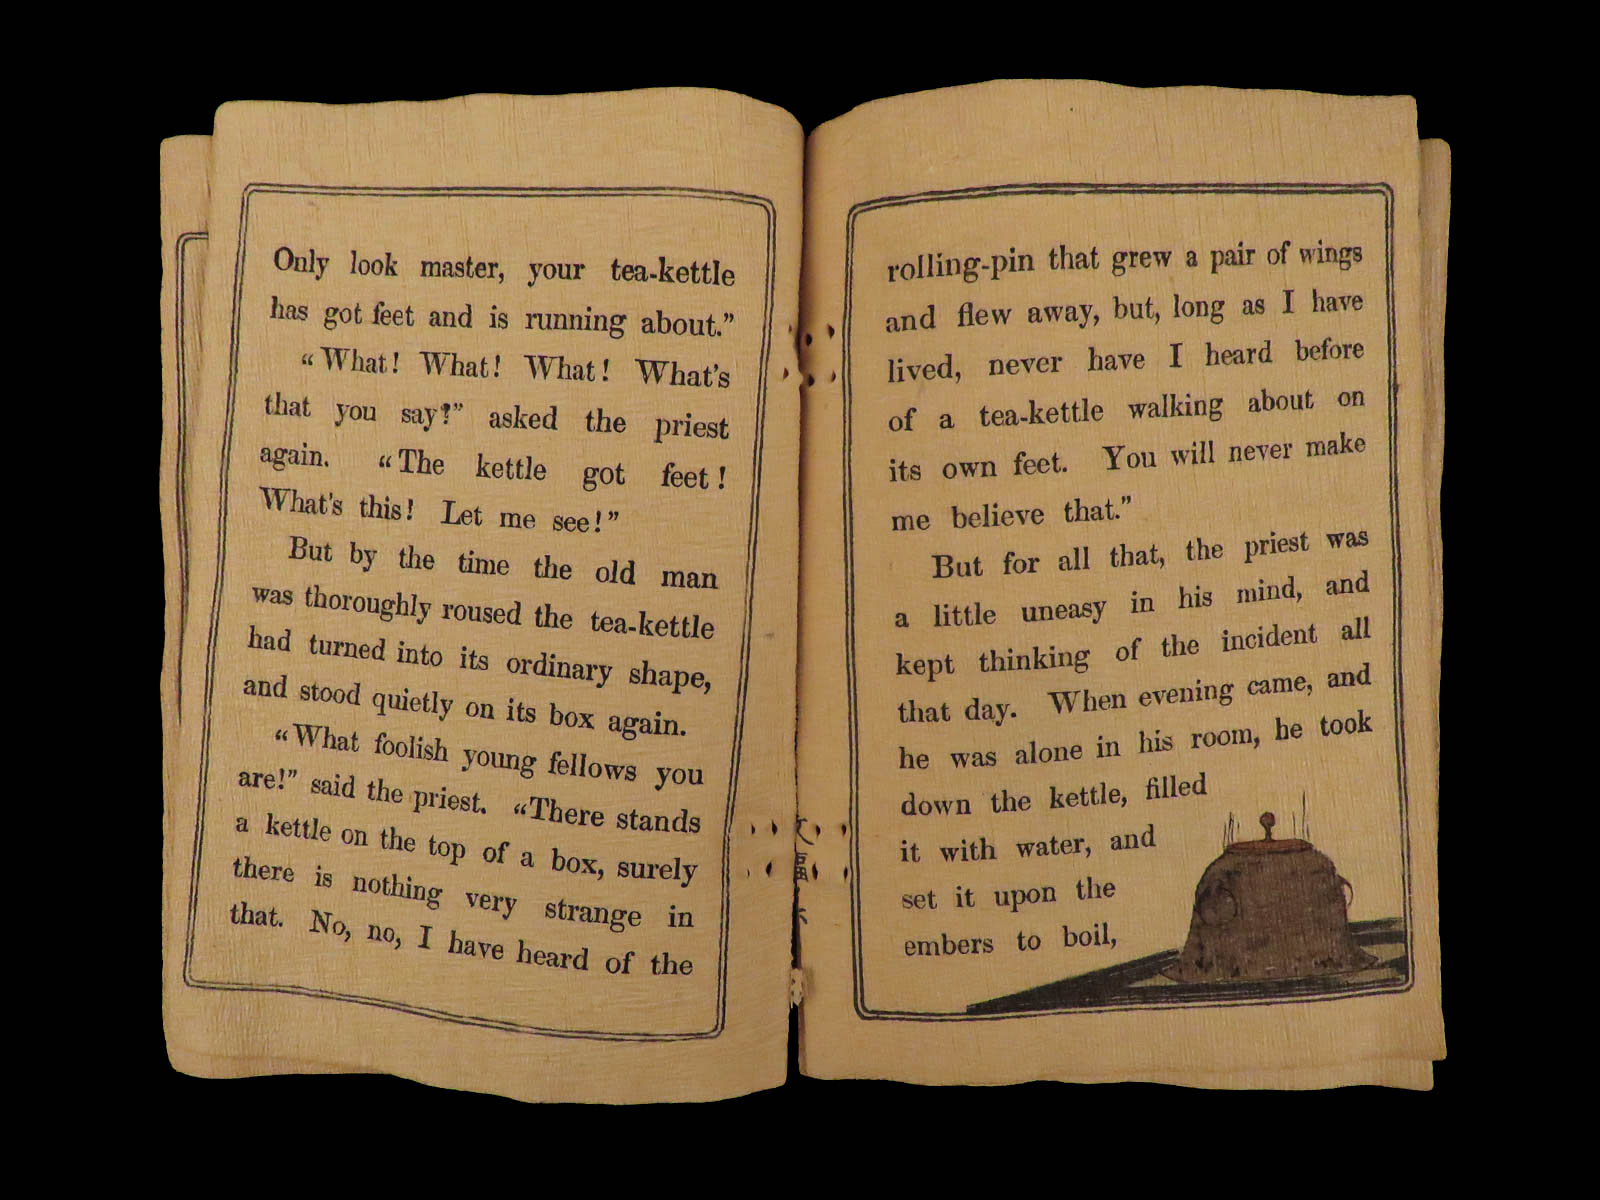 Only look master, your tea-kettle
has got feet and is running about.”
“What! What! What! What's
that you say?” asked the priest
again. “The kettle got feet!
What's this! Let me see!”
But by the time the old man
was thoroughly roused the tea-kettle
had turned into its ordinary shape,
and stood quietly on its box again.
“What foolish young fellows you
are!” said the priest. “There stands
a kettle on the top of a box, surely
there is nothing very strange in
that. No, no, I have heard of the
rolling-pin that grew a pair of wings
and flew away, but, long as I have
lived, never have I heard before
of a tea-kettle walking about on
its own feet. You will never make
me believe that.”
But for all that, the priest was
a little uneasy in his mind, and
kept thinking of the incident all
that day. When evening came, and
he was alone in his room, he took
down the kettle, filled
it with water, and
set it upon the
embers to boil,